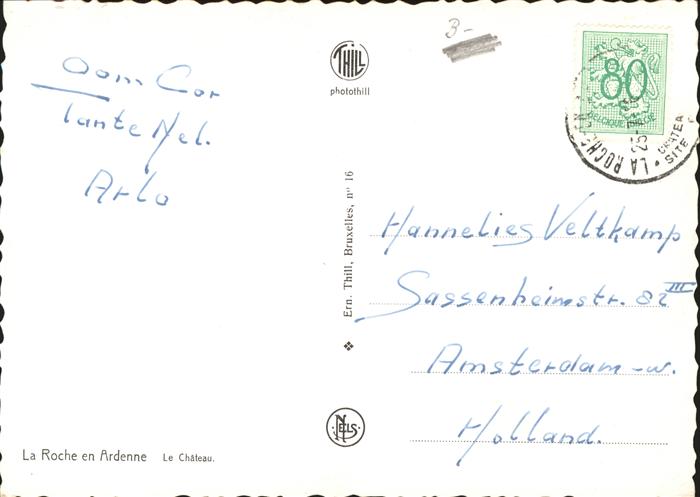 Oom Cor
Tante Nel.
Arlo
La Roche en Ardenne Le Château.
THILL
photothill
Ern. Thill, Bruxelles, nº 16
NELS
3-
80
BELGIQUE-BELGIE
LA ROCHE
CHATEA
SITE
Hannelies Veltkamp
Sassenheimstr. 82 III
Amsterdam-w.
Holland.